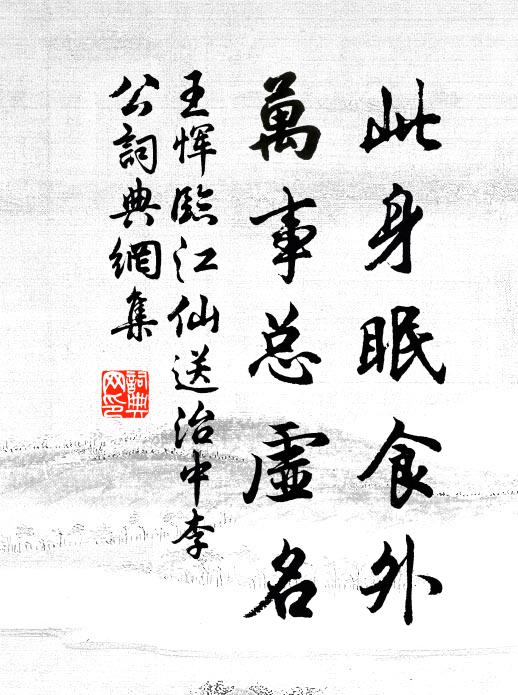 此身眠食外
萬事总虛名
王惲臨江仙送治中李
公詞典網集
詞典
网印